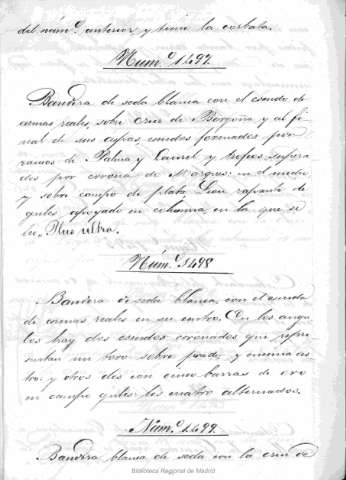 del núm.º anterior y tiene la corbata.
Núm.º 1497
Bandera de seda blanca con el escudo de
armas reales, sobre cruz de Borgoña y al fi-
nal de sus aspas, escudos formados por
ramos de Palma y Laurel y trofeos, supera
dos por corona de Marques: en el medio
y sobre campo de plata, Leon rapante de
gules apoyado en columna en la que se
lee, Plus ultra.
Núm.º 1498
Bandera de seda blanca, con el escudo
de armas reales en su centro. En los angu-
los hay dos escudos coronados que repre-
sentan un toro sobre prado, y encima as-
tro: y otros dos con cinco barras de oro
en campo gules: los cuatro alternados.
Núm.º 1499.
Bandera blanca de seda con la cruz de
Biblioteca Regional de Madrid